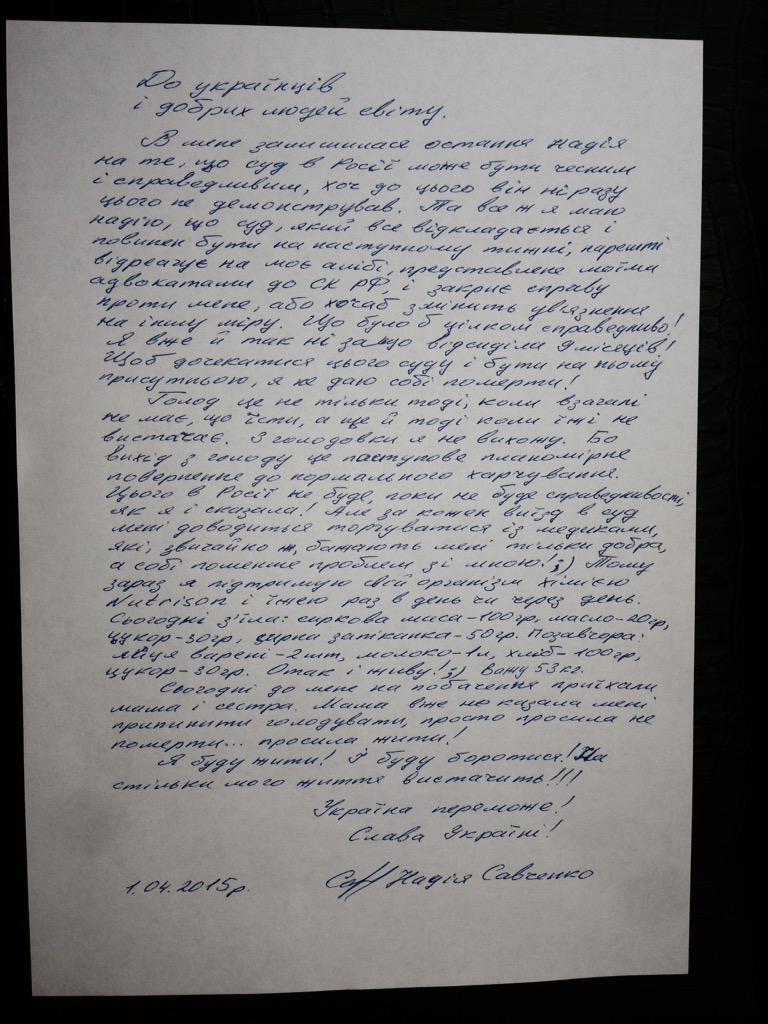 До українців
і добрих людей світу.
В мене залишилася остання надія
на те, що суд в Росії може бути чесним
і справедливим, хоч до цього він ні разу
цього не демонстрував. Та все ж я маю
надію, що суд, який все відкладається і
повинен бути на наступному тижні, нарешті
відреагує на моє алібі, представлене моїми
адвокатами до СК РФ, і закриє справу
проти мене, або хочаб змінить ув'язнення
на іншу міру. Що було б цілком справедливо!
Я вже й так ні за що відсиділа 9 місяців!
Щоб дочекатися цього суду і бути на ньому
присутньою, я не даю собі померти!
Голод це не тільки тоді, коли взагалі
не має, що їсти, а ще й тоді коли їжі не
вистачає. З голодовки я не вихожу. Бо
вихід з голоду це поступове планомірне
повернення до нормального харчування.
Цього в Росії не буде, поки не буде справедливості,
як я і сказала! Але за кожен виїзд в суд
мені доводиться торгуватися із медиками,
які, звичайно ж, бажають мені тільки добра,
а собі поменше проблем зі мною! ;) Тому
зараз я підтримую свій організм хімією
Nutrison і їжею раз в день чи через день.
Сьогодні з'їла: сиркова маса-100гр, масло-20гр,
цукор-30гр, сирна запіканка-50гр. Позавчора:
яйця варені-2шт, молоко-1л, хліб-100гр,
цукор-30гр. Отак і живу! ;) Важу 53кг.
Сьогодні до мене на побачення приїхали
мама і сестра. Мама вже не казала мені
припинити голодувати, просто просила не
померти... просила жити!
Я буду жити! І буду боротися! На
стільки мого життя вистачить!!!
Україна переможе!
Слава Україні!
1.04.2015р. Надія Савченко